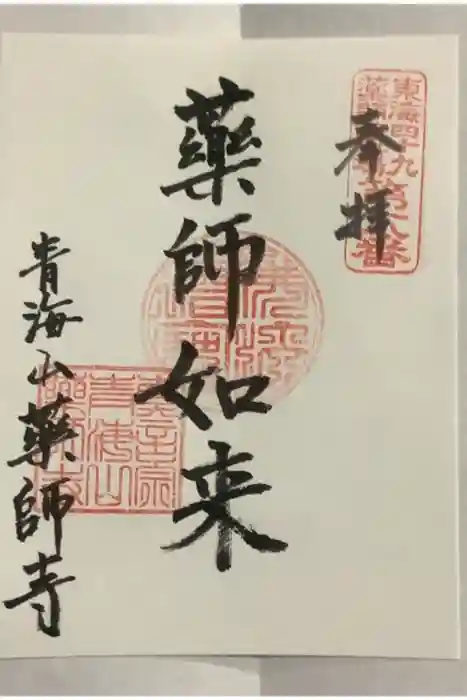 奉拝
東海四十九
薬師霊場第八番
薬師如来
青海山薬師寺